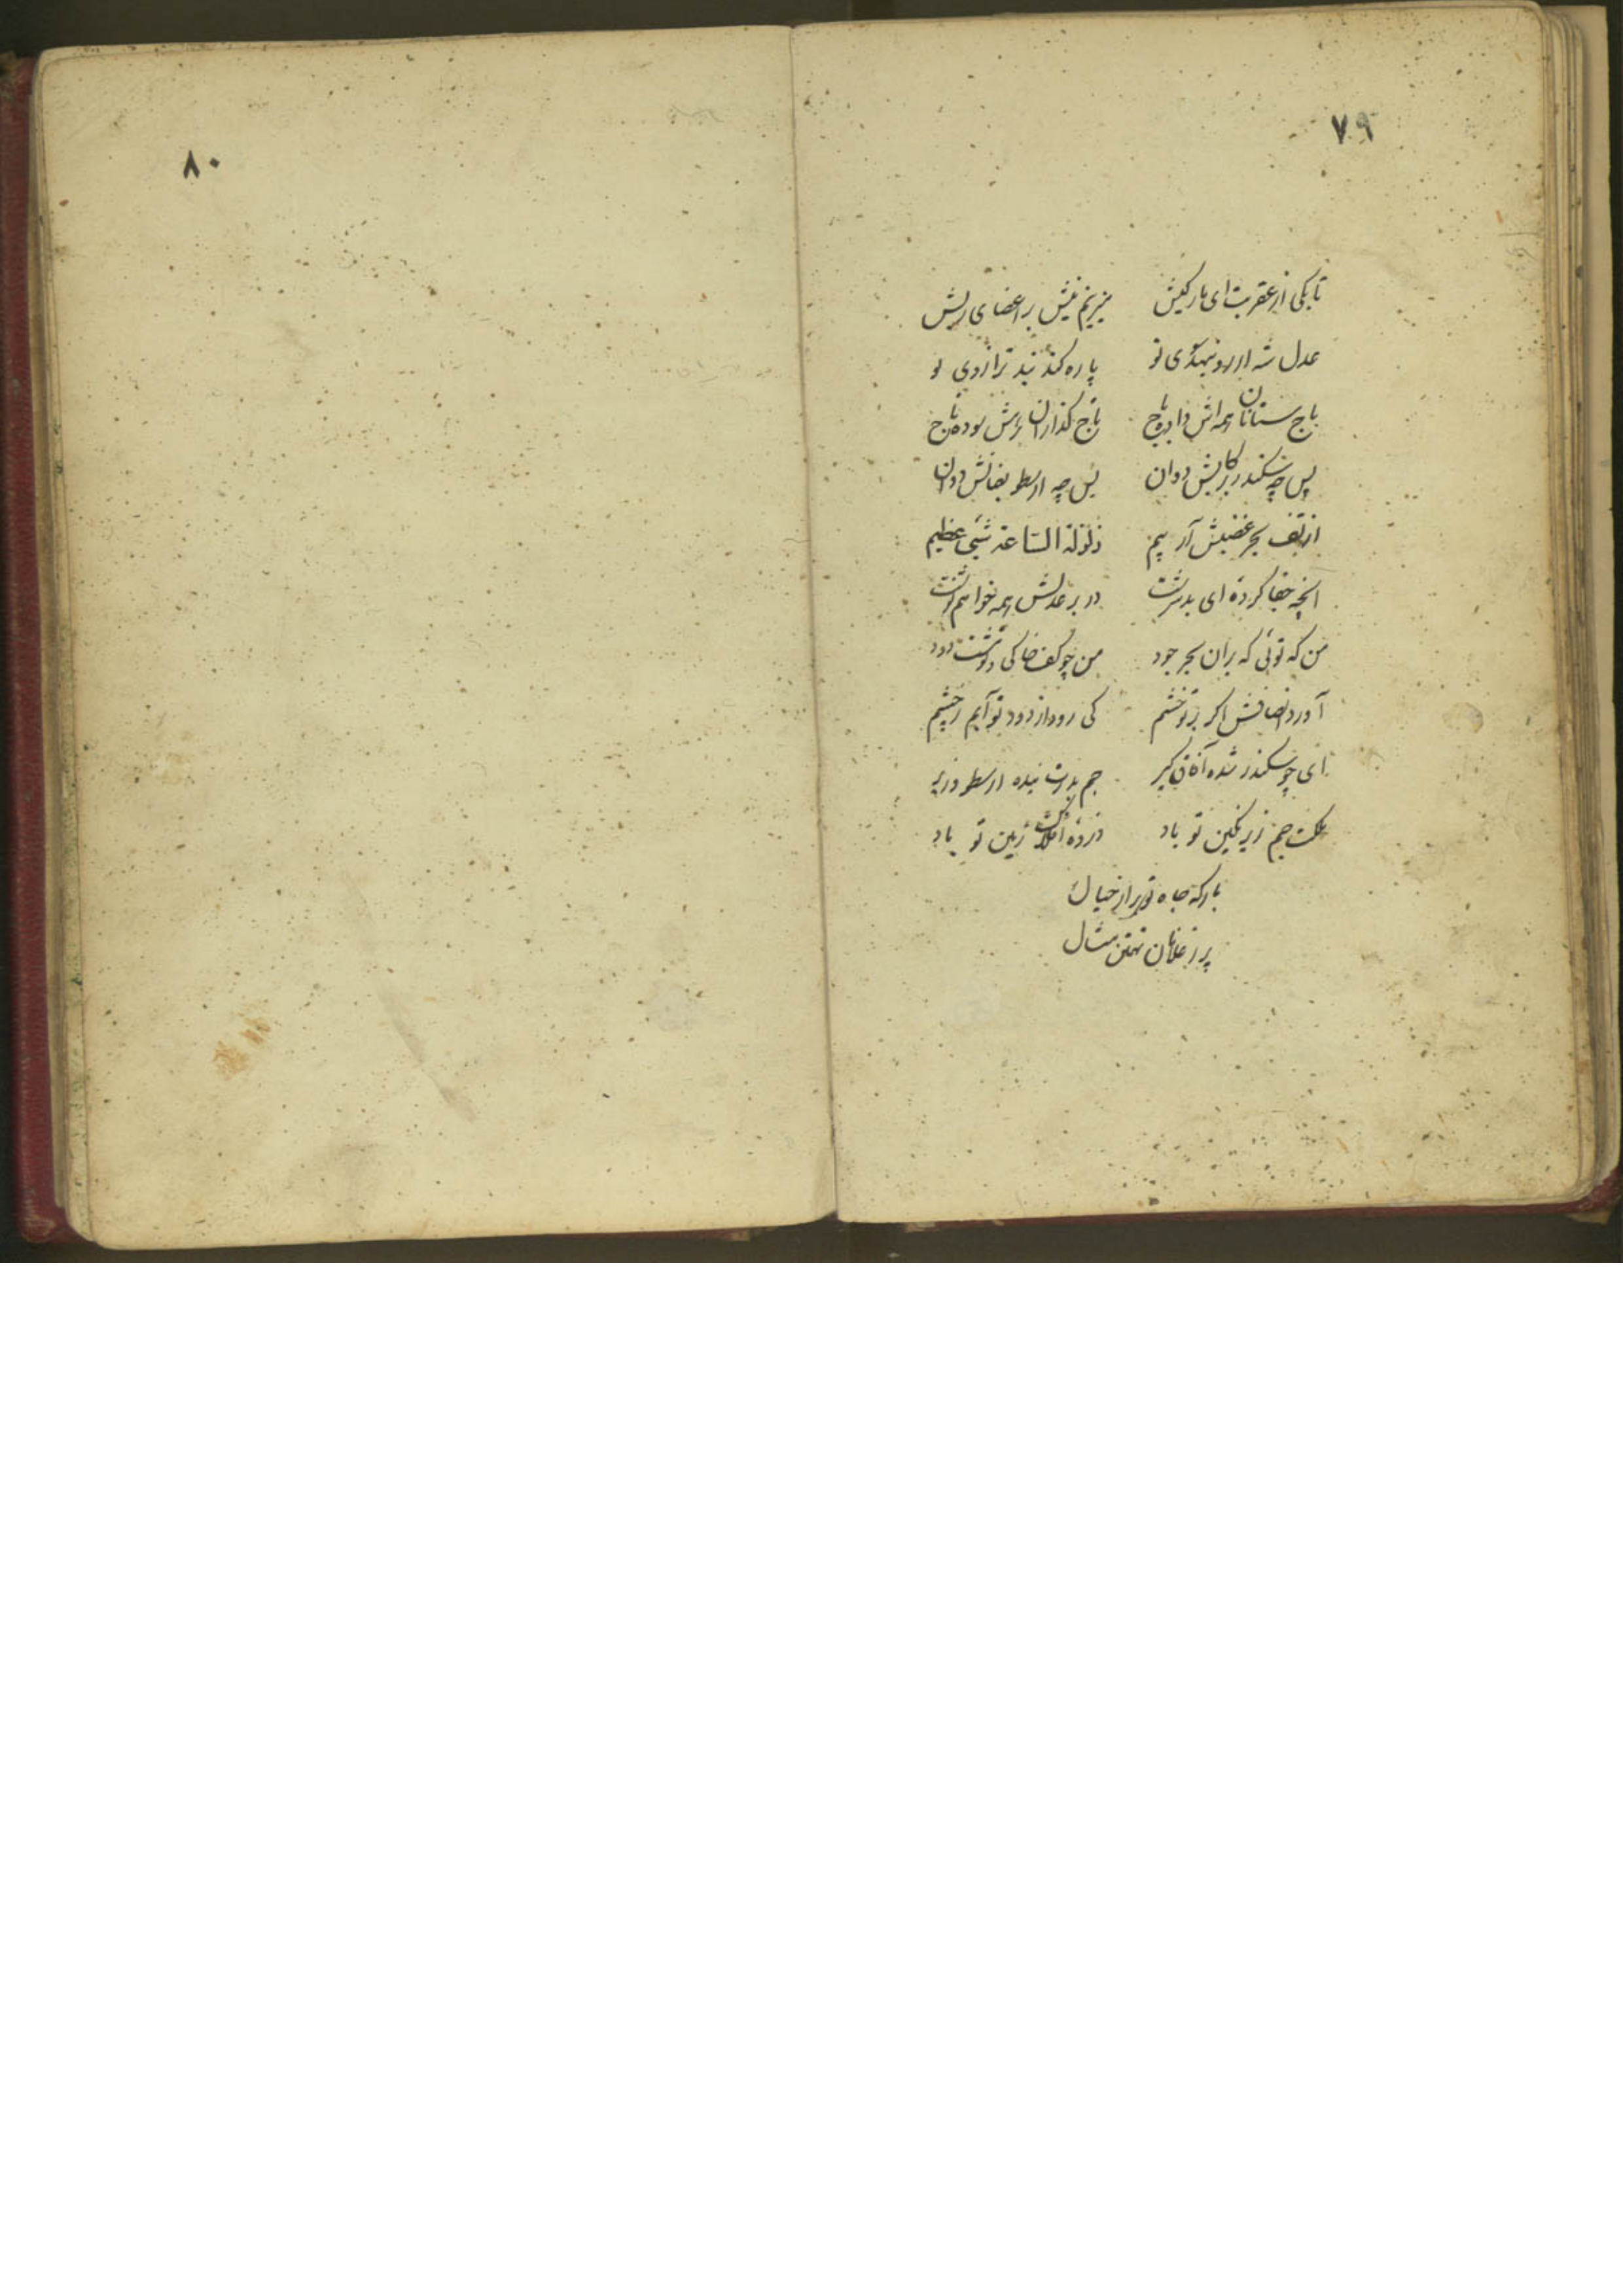 ۷۹
تا بکی از عقربت ای مار کیش میزنیم نیش بر اعضای ریش
عدل شه ار رو نهد سوی تو پاره کند بند ترازوی تو
باج ستانان همه اش داده باج تاج گذاران برش سوده تاج
پس چه سکندر برکابش دوان پس چه ارسطو بعنانش دوان
از تف بحر غضبش آر بیم زلزلة الساعة شیئی عظیم
آنچه جفا کردهٔ ای بدسرشت در بر عدلش همه خواهم نوشت
من که توئی که بران بحر جود من چو کف خاکی و تو مشت دود
آورد انصافش اگر بر تو خشم کی رود از دود تو آبم ز چشم
ای چو سکندر شده آفاق گیر جم بدرت بنده ارسطو وزیر
ملکت جم زیر نگین تو باد ذروهٔ افلاک زمین تو باد
بارگه جاه تو برتر از خیال
پر ز غلامان تهمتن مثال
۸۰